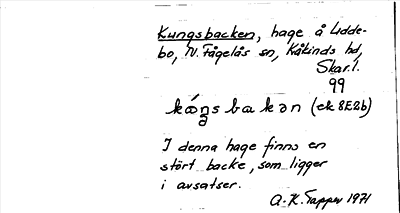 Kungsbacken, hage å Udde-
bo, N. Fågelås sn, Kåkinds hd,
Skar.l.
99
(ek 8E2b)
I denna hage finns en
stört backe, som ligger
i avsatser.
A.-K. Tapper 1971